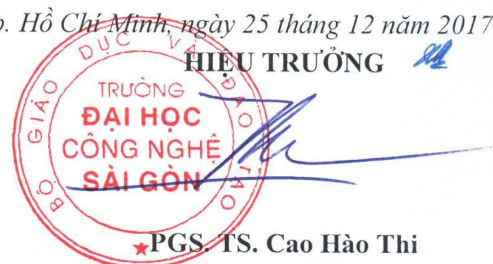 p. Hồ Chí Minh, ngày 25 tháng 12 năm 2017
HIỆU TRƯỞNG
BỘ GIÁO DỤC VÀ ĐÀO TẠO
TRƯỜNG
ĐẠI HỌC
CÔNG NGHỆ
SÀI GÒN
PGS. TS. Cao Hào Thi